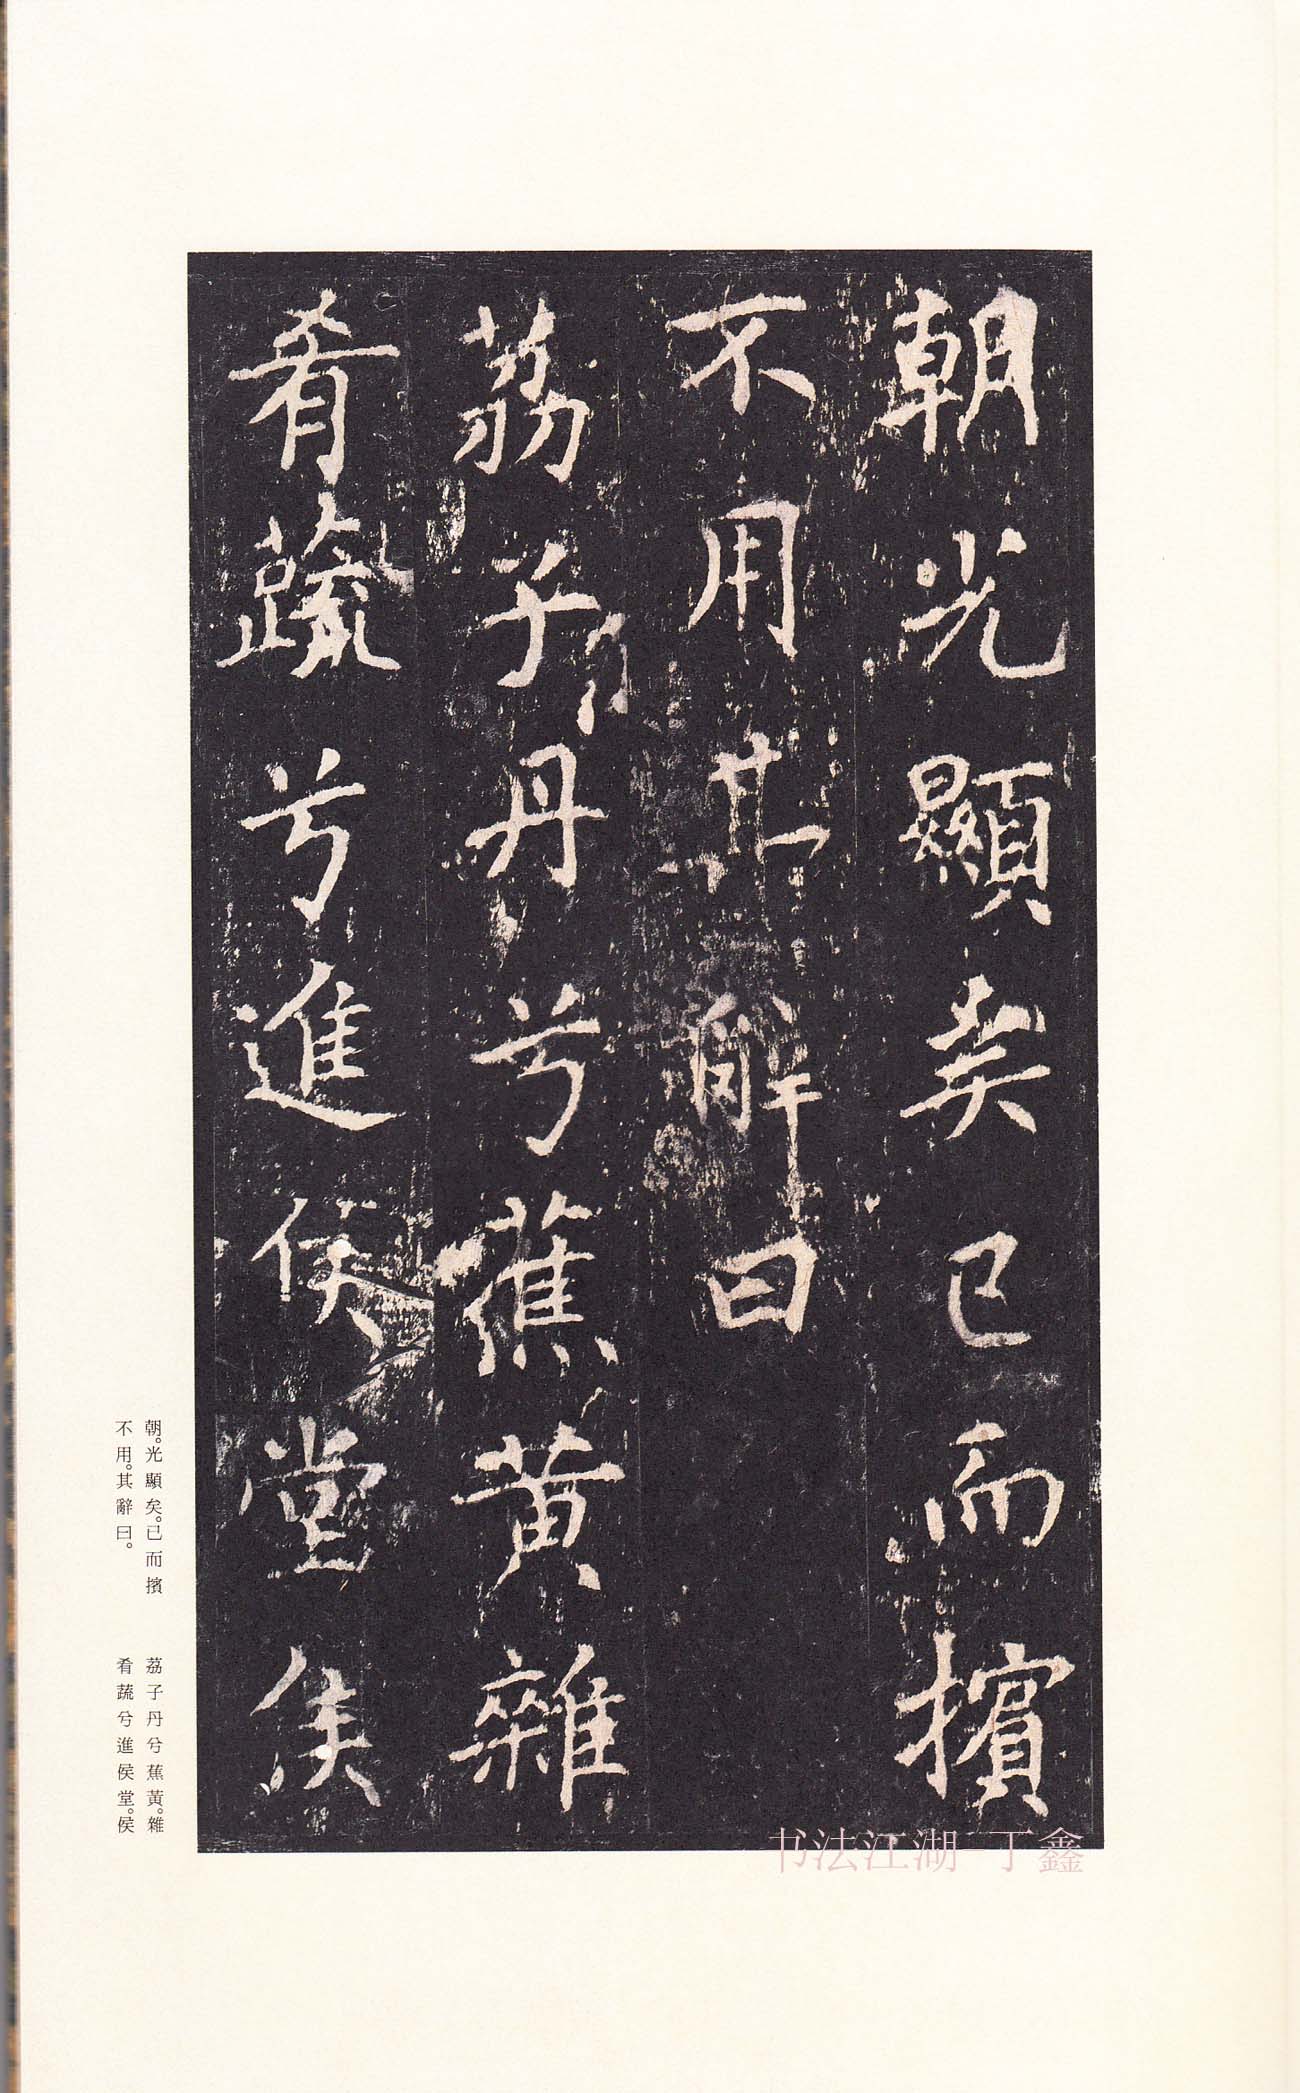 朝光顯矣已而擯
不用其辭曰
荔子丹兮蕉黄雜
肴蔬兮進侯堂侯
朝。光顯矣。已而擯
不用。其辭曰。
荔子丹兮蕉黃。雜
肴蔬兮進侯堂。侯
书法江湖-丁鑫